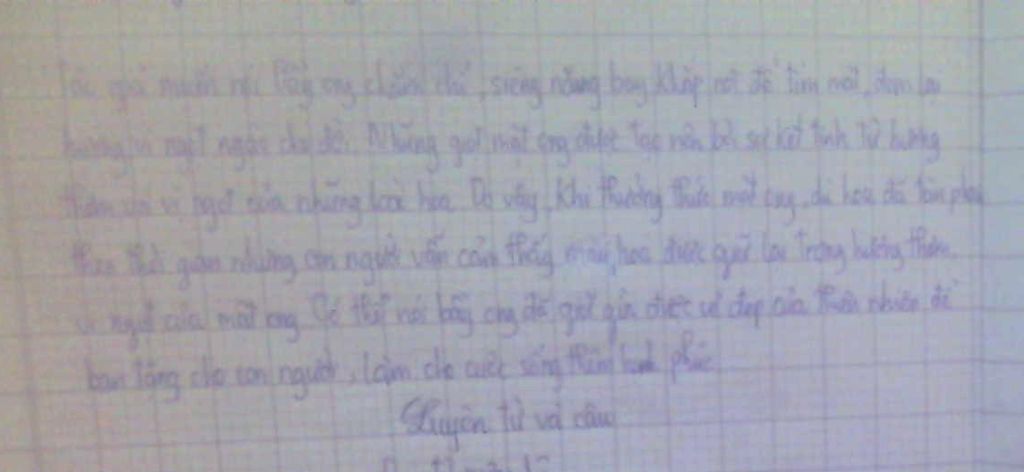 Tác giả muốn nói bầy ong chăm chỉ, siêng năng bay khắp nơi để tìm mật, đem lại
hương vị ngọt ngào cho đời. Những giọt mật ong được tạo nên bởi sự kết tinh từ hương
thơm và vị ngọt của những loài hoa. Do vậy, khi thưởng thức mật ong, dù hoa đã tàn phai
theo thời gian nhưng con người vẫn cảm thấy màu hoa được giữ lại trong hương thơm,
vị ngọt của mật ong. Có thể nói bầy ong đã giữ gìn được vẻ đẹp của thiên nhiên để
ban tặng cho con người, làm cho cuộc sống thêm hạnh phúc
Luyện từ và câu